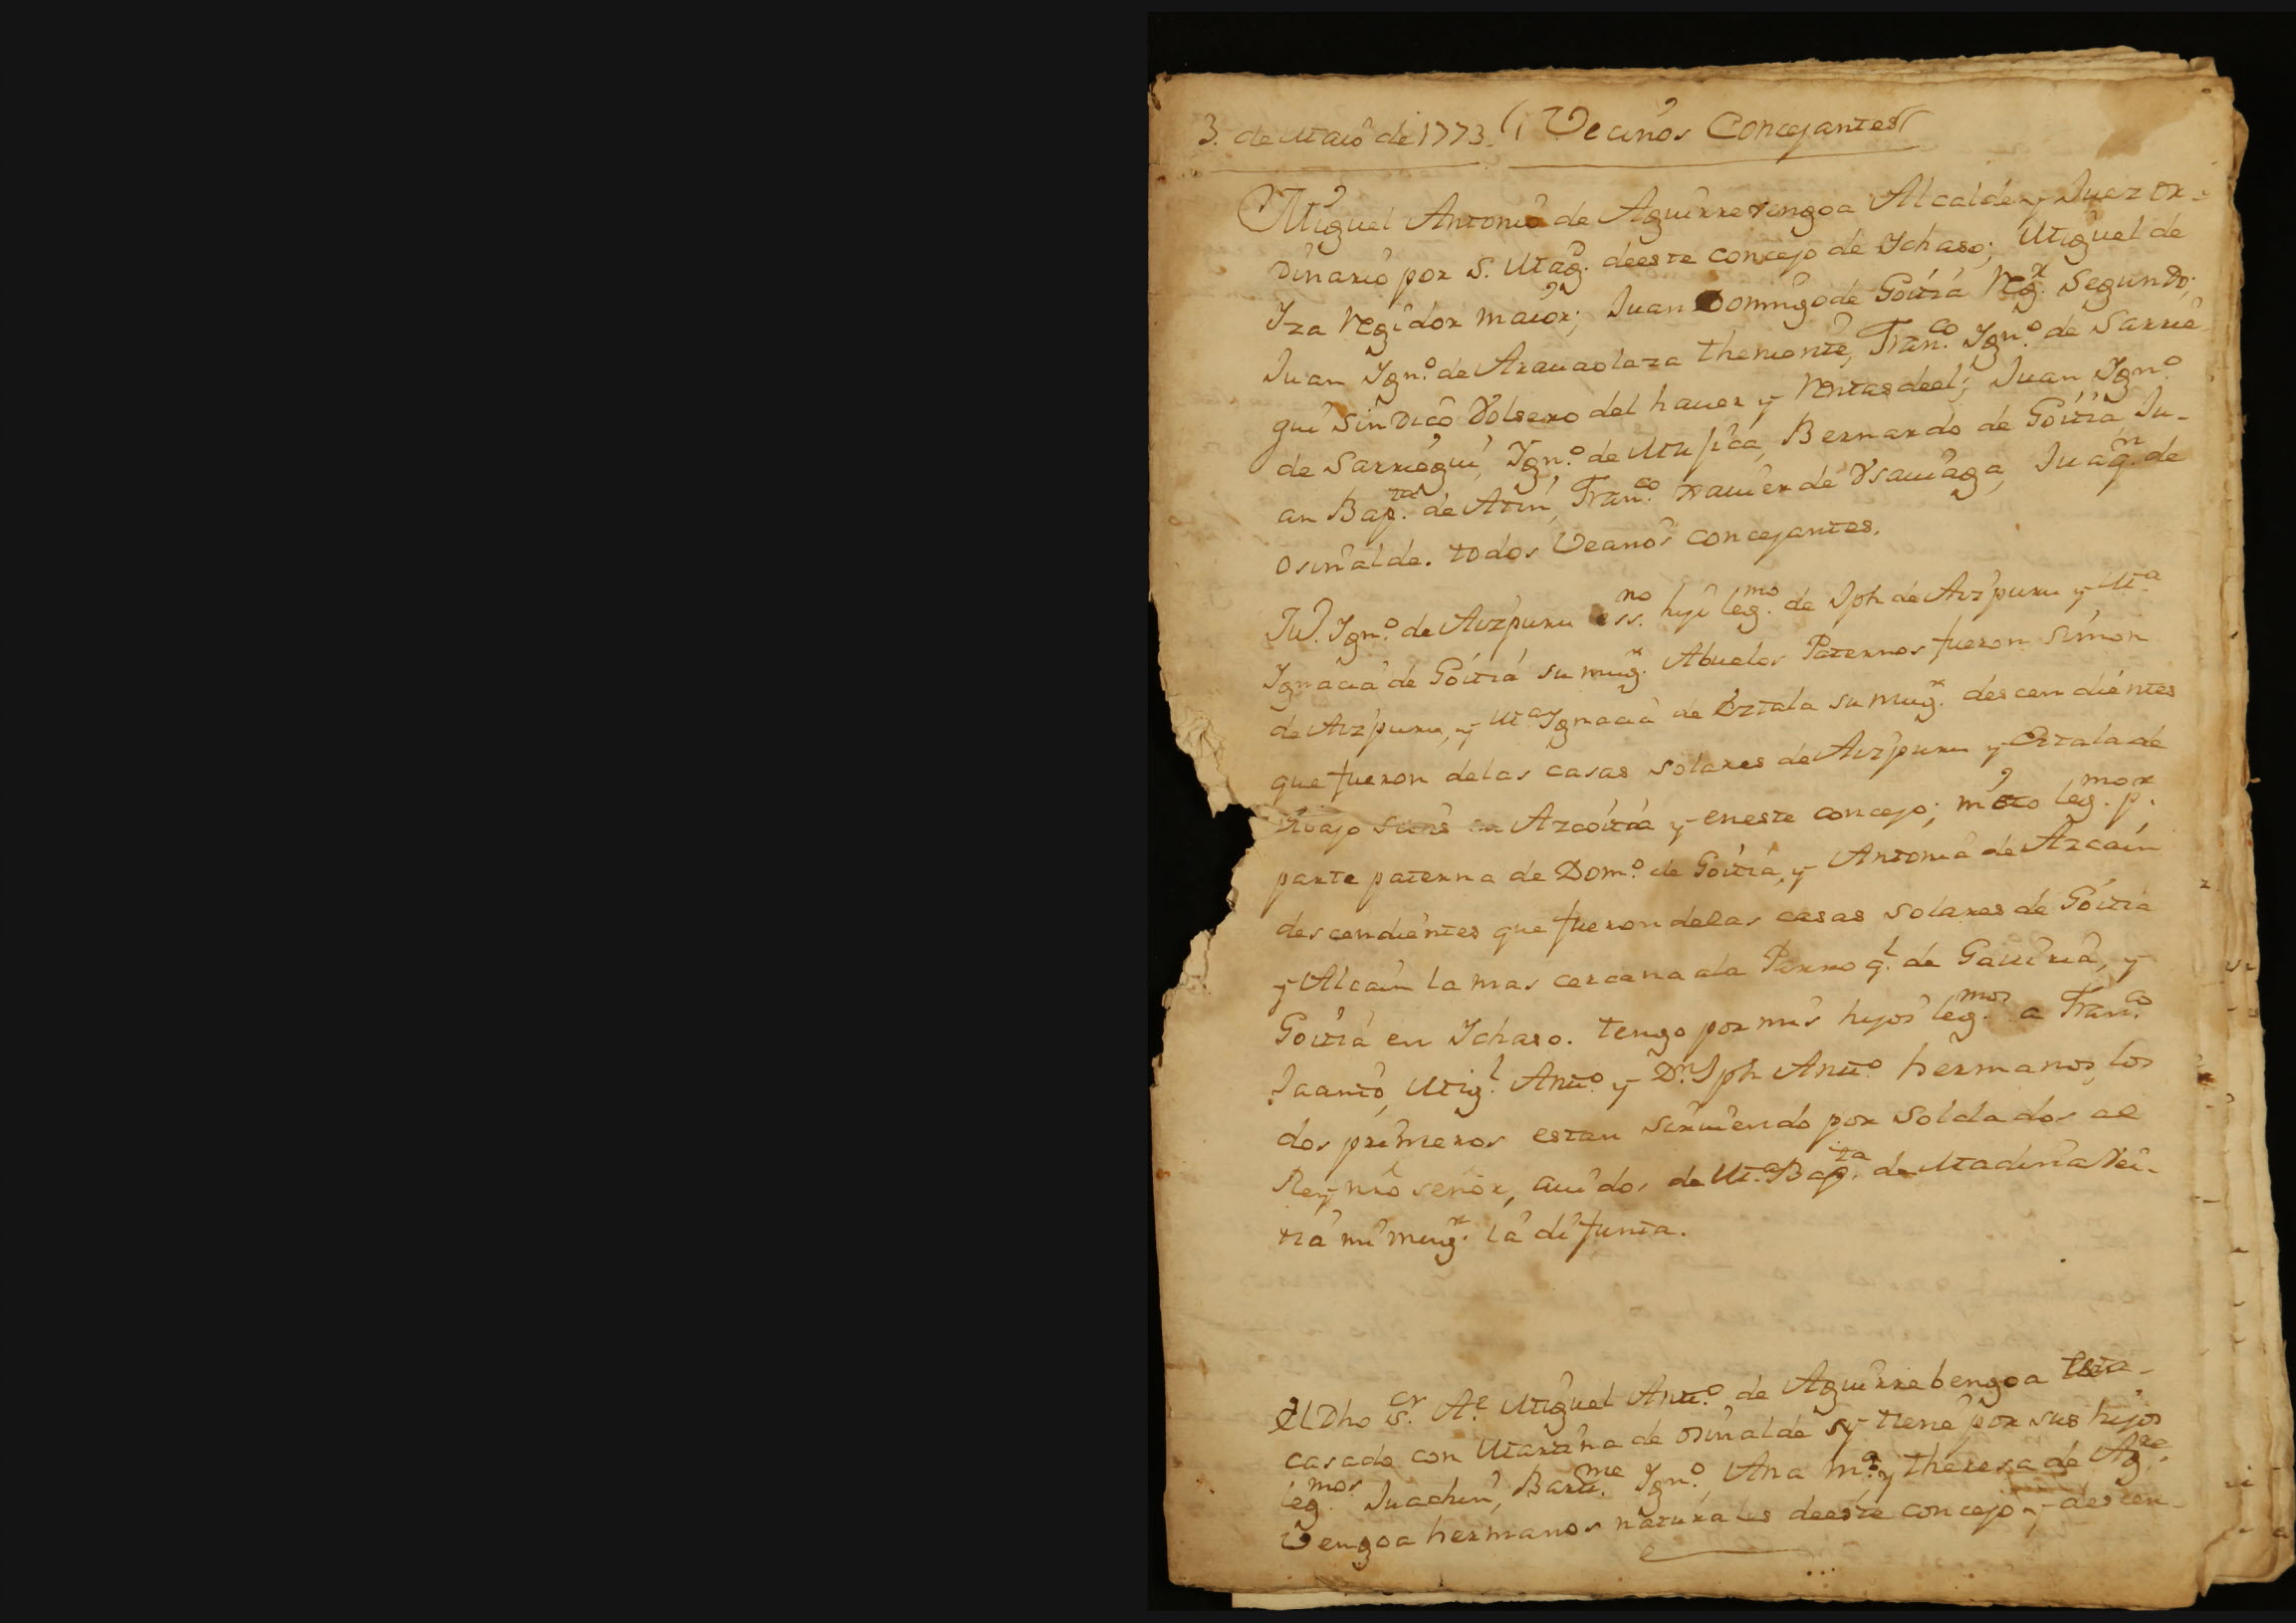 3. de Maio de 1773. Vecinos Concejantes
Miguel Antonio de Aguirrevengoa Alcalde y Juez or-
dinario por S. Mag.d deeste concejo de Ichaso; Miguel de
Yza Regidor maior; Juan Domingo de Goitia Reg.r Segundo;
Juan Ign.o de Arauaolaza theniente, Fran.co Ign.o de Sarrie-
gui Sindico Volsero del hauer y Rentas deel; Juan Ign.o
de Sarriegui, Ign.o de Mugica, Bernardo de Goitia, Ju-
an Bap.ta de Atin, Fran.co xauier de Vsauiaga, Juaq.n de
Osinalde. todos Vecinos concejantes.
Ju. Ign.o de Aizpuru ess.no hijo leg.mo de Jph de Aizpuru y M.a
Ignacia de Goitia su mug.r Abuelos Paternos fueron Simon
de Aizpuru, y M.a Ignacia de Eztala su mug.r descendientes
que fueron delas casas solares de Aizpuru y Eztala de
Abajo sitas en Azcoitia y eneste concejo; nieto leg.mo p.r
parte paterna de Dom.o de Goitia, y Antonia de Alcain
descendientes que fueron delas casas solares de Goitia
y Alcain la mas cercana ala Parroq.l de Gauiria, y
Goitia en Ichaso. tengo por mis hijos leg.mos a Fran.co
Jacinto, Mig.l Antt.o y D.n Jph Antt.o hermanos, los
dos primeros estan siruiendo por Soldados al
Rey nro señor, auidos de M.a Bap.ta de Madinabei-
tia mi mug.r la difunta.
El Dho S.or Al.e Miguel Antt.o de Aguirrebengoa esta
casado con Martina de Osinalde y tiene por sus hijos
leg.mos Juachin, Bartt.me Ign.o, Ana M.a y theresa de Ag.re
Vengoa hermanos naturales deeste concejo y descen-